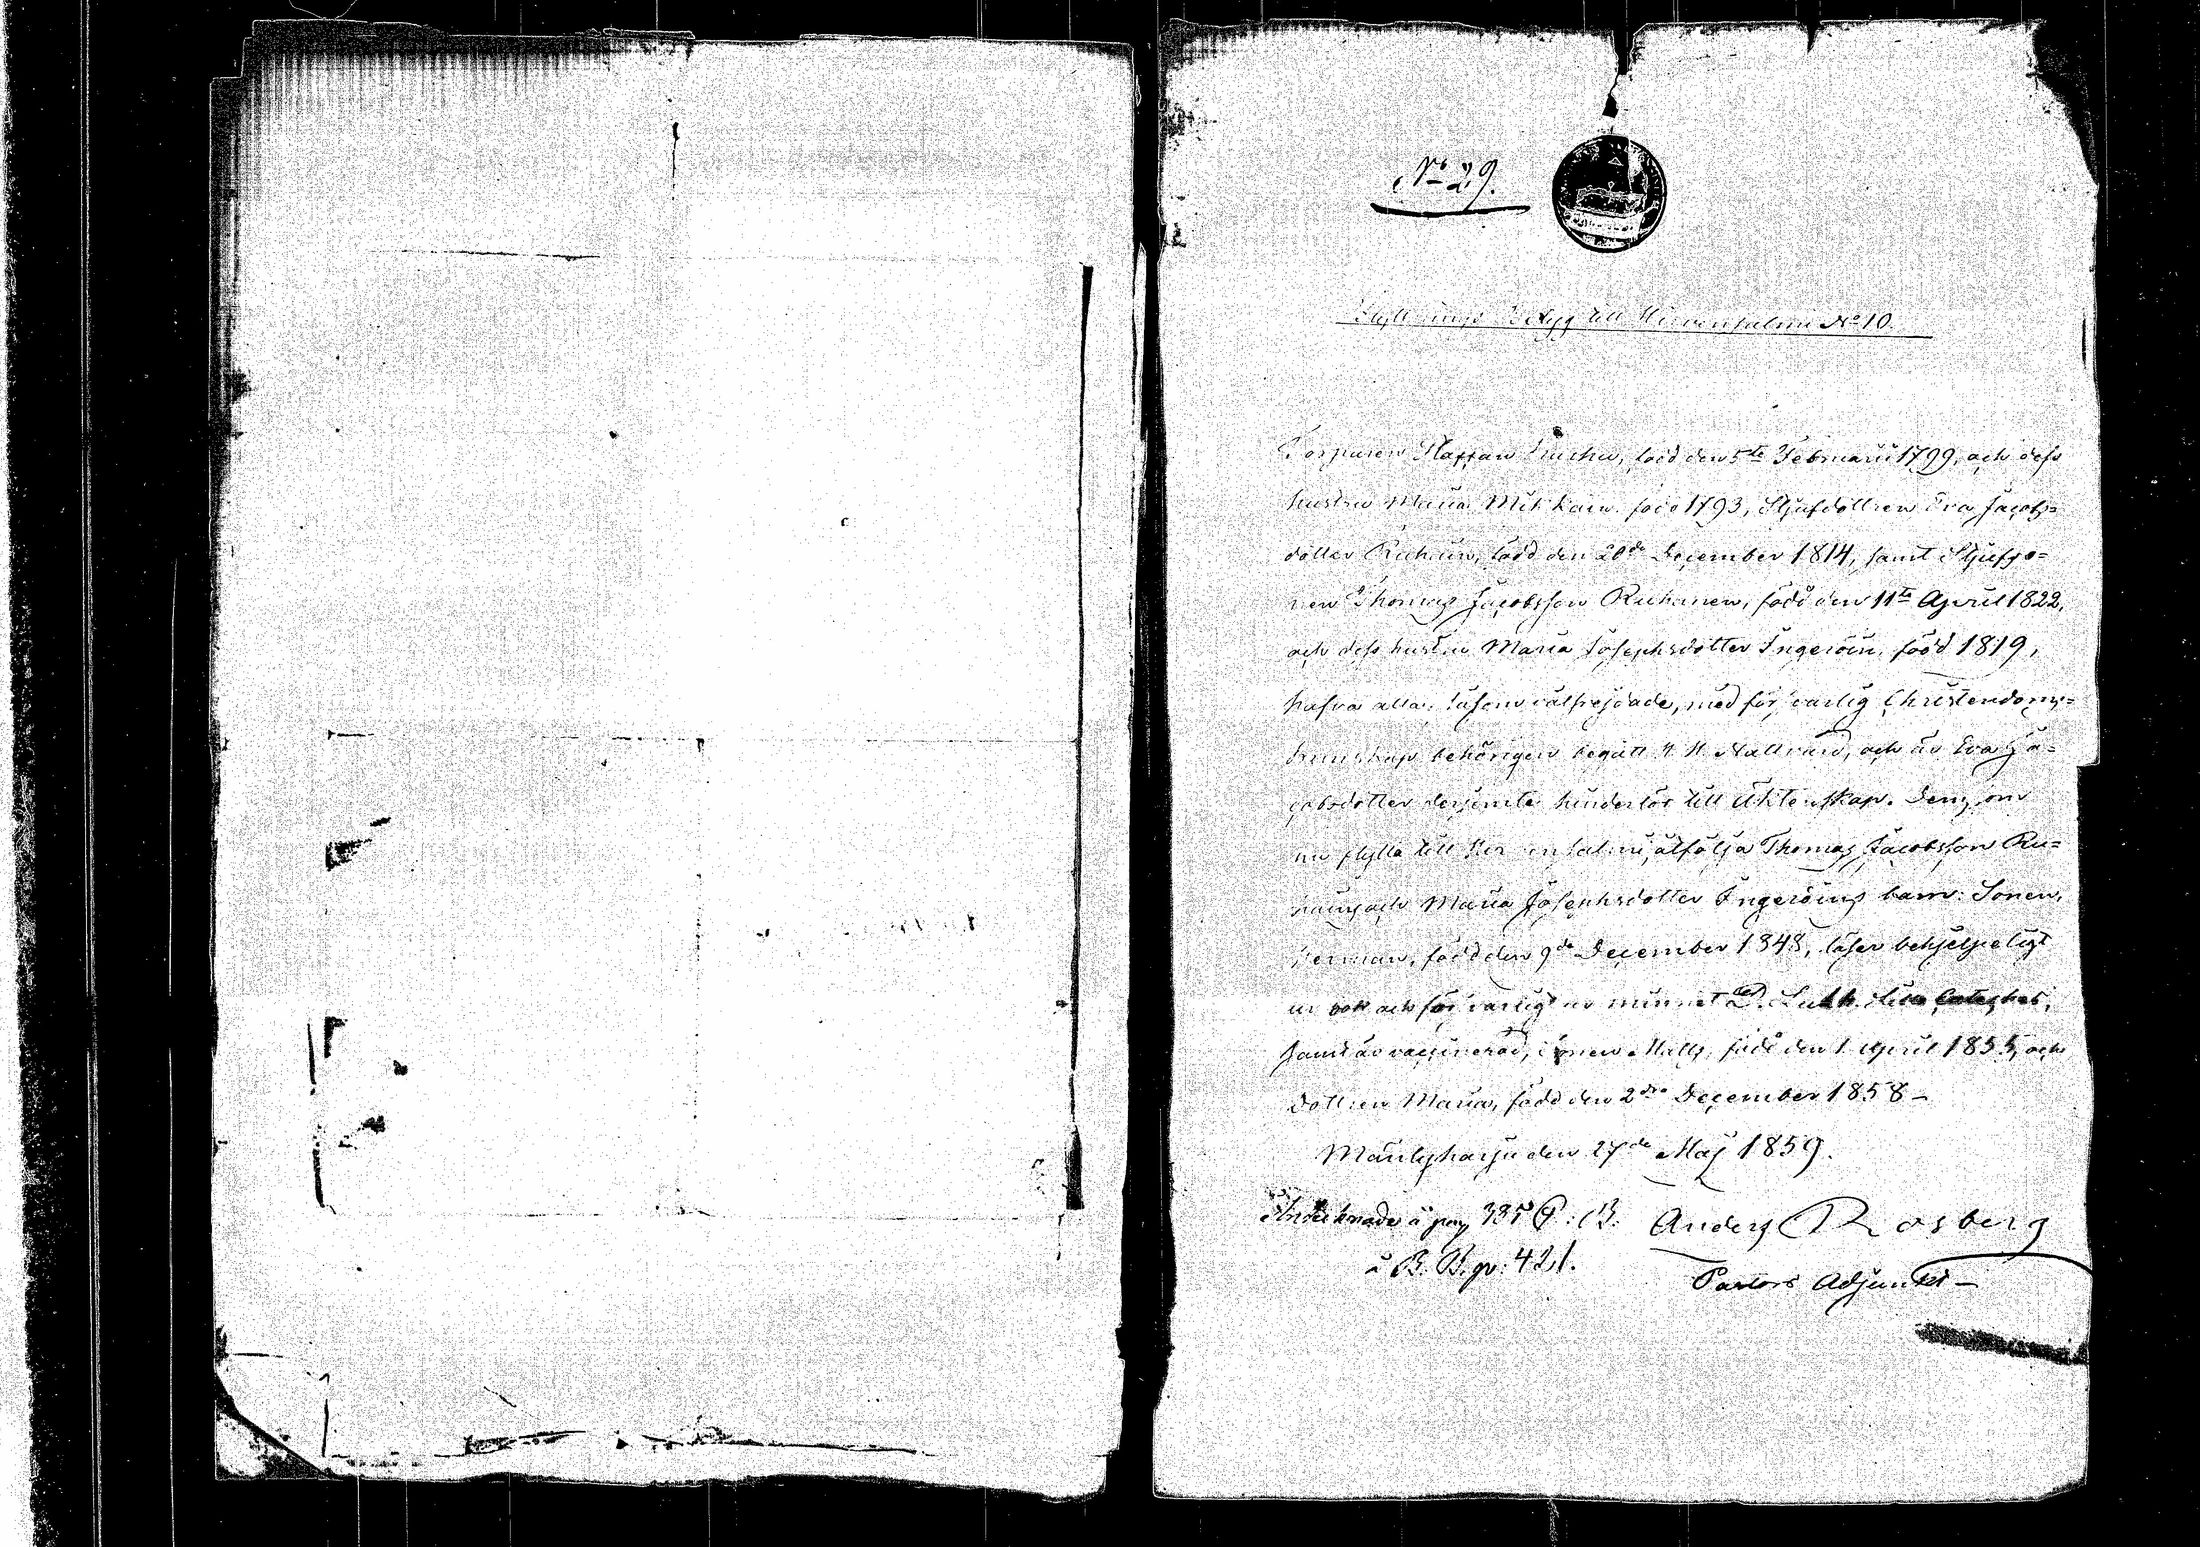 No 29.
Flyttnings Betyg till Hirvensalmi No 10.
Torparen Staffan född den 5te Februarii 1799, och dess
hustru Maria född 1793, Stjufdottren Eva Jacobs=
dotter Ruhain, född den 20de December 1814, samt Stjufso=
nen Thomas Jacobsson Ruhanen, född den 11te April 1822,
och dess hustru Maria Josephsdotter Ingeröin, född 1819,
hafva alla, såsom välfrejdade, med försvarlig Christendoms=
kunskap behörigen begått H. H. Nattvard, och är Eva Ja=
cobsdotter derjemte hinderlös till äktenskap. Dem, som
nu flytta till Hirvensalmi, åtfölja Thomas Jacobsson Ru=
hains och Maria Josephsdotter Ingeröins barn: Sonen,
Herman, född den 9de December 1848, läser behjelpeligt
ur bok och försvarligt ur minnet D. Luth. lilla Cateches,
samt är vaccinerad, Sonen Matts, född den 1 April 1855, och
dottren Maria, född den 2dra December 1858 –
Mäntyharju den 27de Maj 1859.
Anders Rosberg
Pastors Adjunkt –
Antecknade å pag 385 C. B.
å B. B. p: 421.